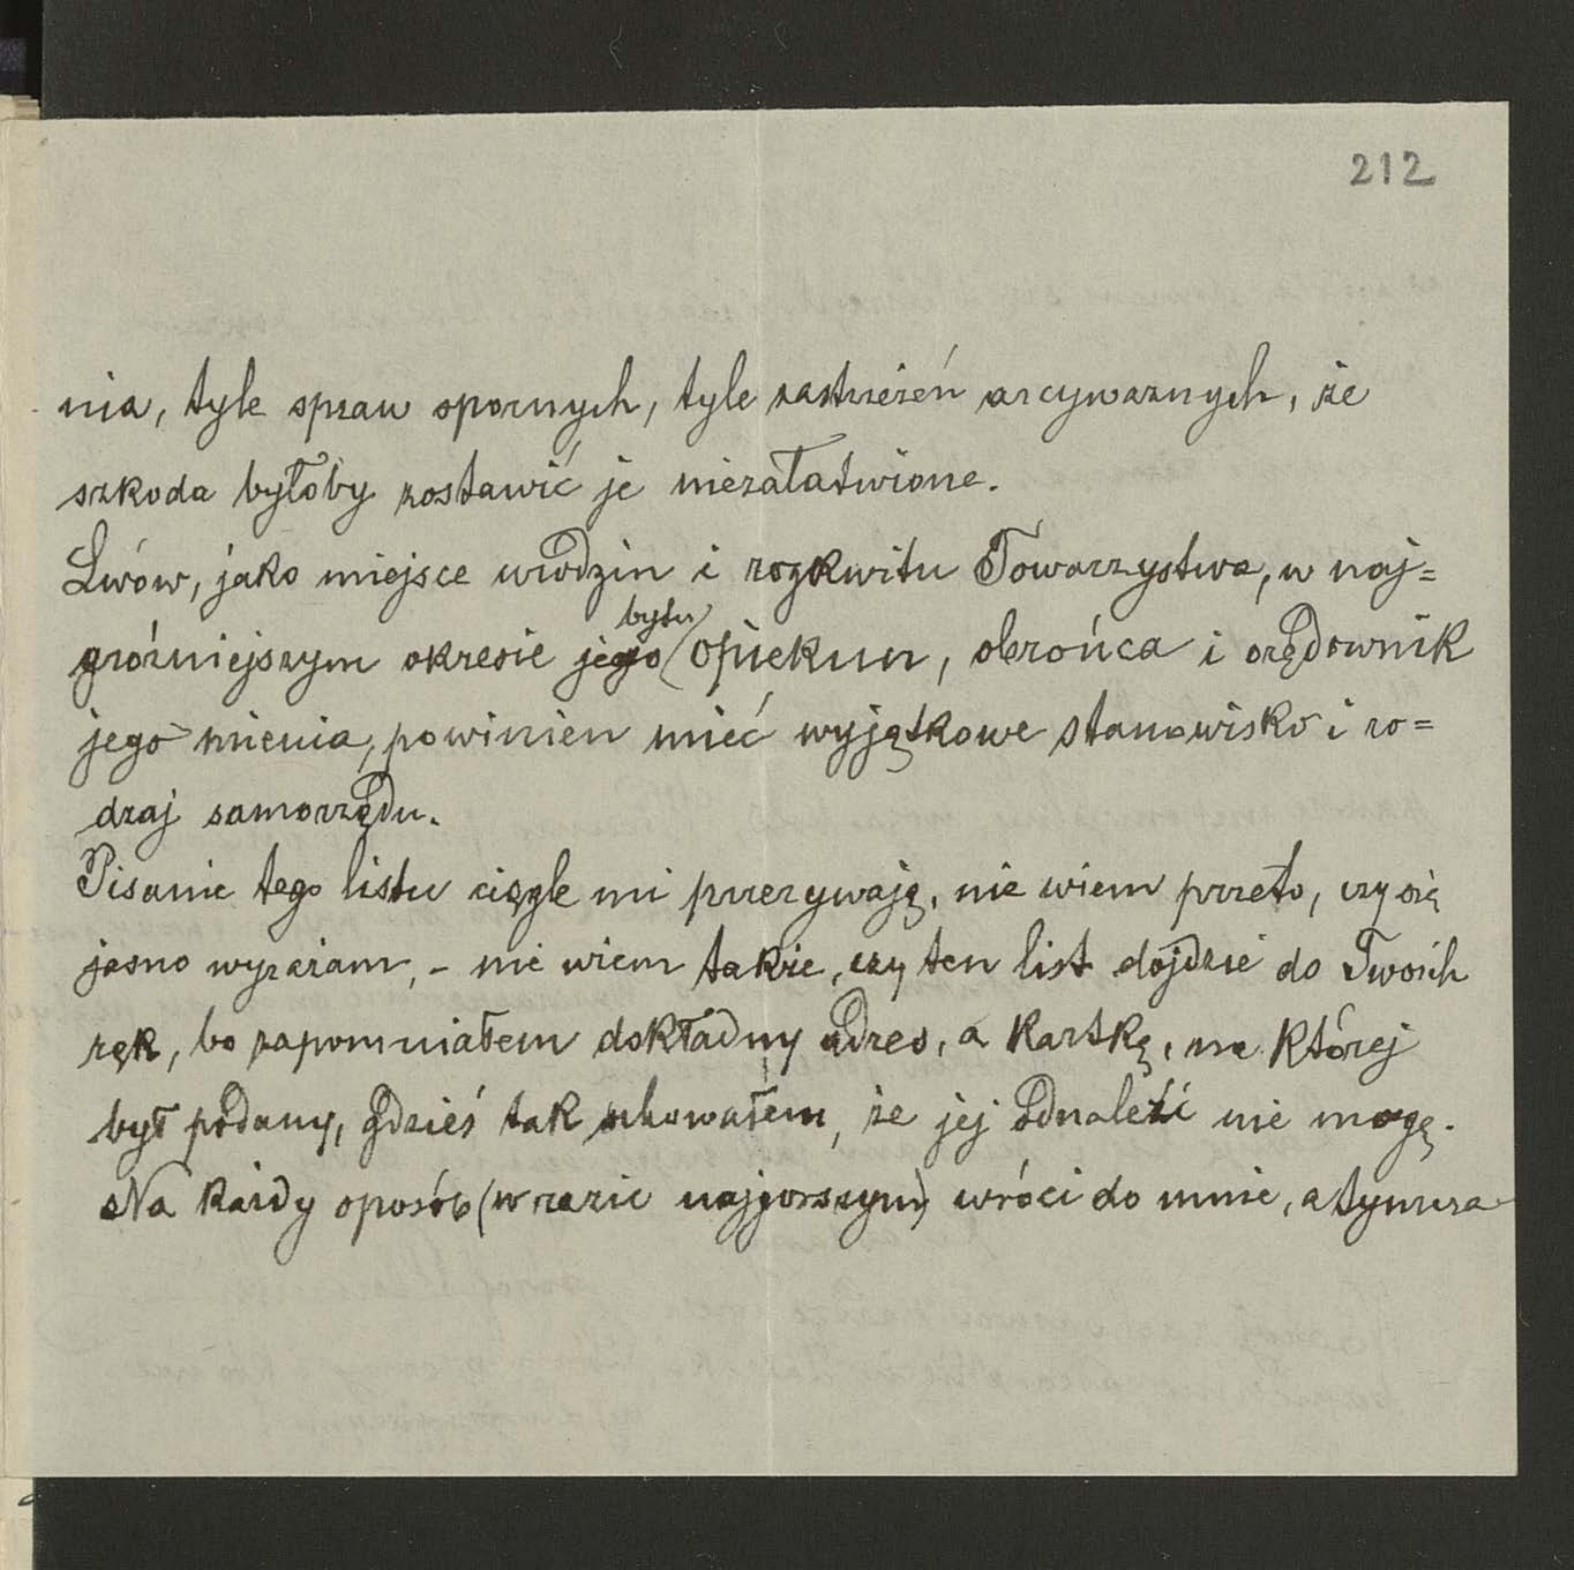 212
nia, tyle spraw spornych, tyle zastrzeżeń arcyważnych, że
szkoda byłoby zostawić je niezałatwione.
Lwów, jako miejsce urodzin i rozkwitu Towarzystwa, w naj=
bytu
groźniejszym okresie jego opiekun, obrońca i orędownik
jego mienia, powinien mieć wyjątkowe stanowisko i ro=
dzaj samorządu.
Pisanie tego listu ciągle mi przerywają, nie wiem przeto, czy się
jasno wyrażam, - nie wiem także, czy ten list dojdzie do Twoich
rąk, bo zapomniałem dokładny adres, a kartkę, na której
był podany, gdzieś tak schowałem, że jej odnaleźć nie mogę.
Na każdy sposób (w razie najgorszym) wróci do mnie, a tymcza